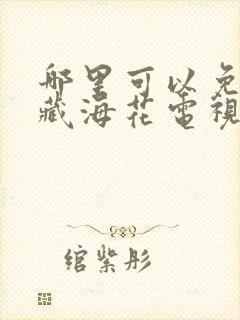 哪里可以免
藏海花電視
绾紫彤